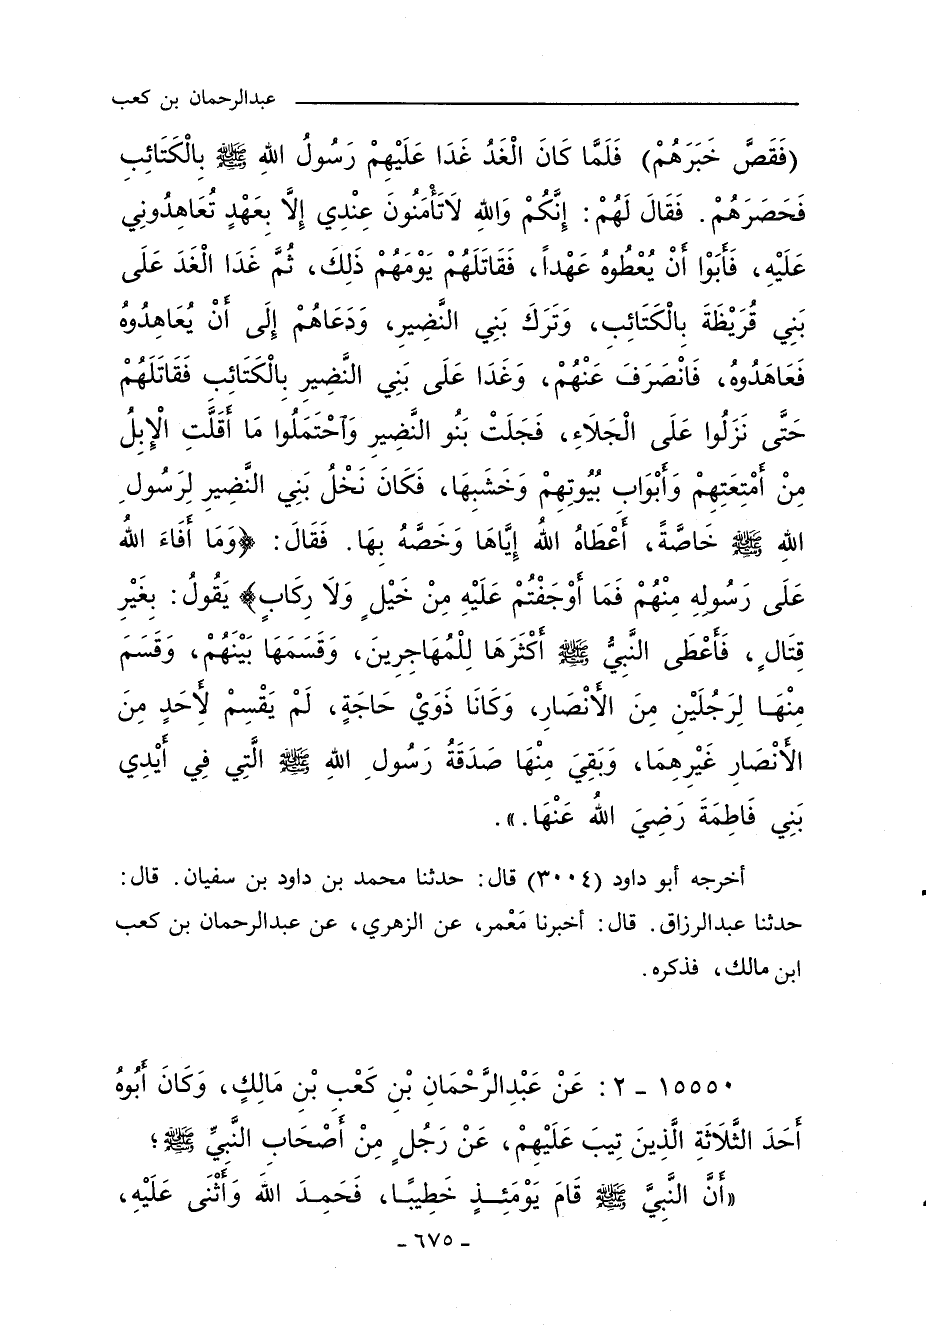 عبدالرحمان بن كعب
(فَقَصَّ خَبَرَهُمْ) فَلَمَّا كَانَ الْغَدُ غَدَا عَلَيْهِمْ رَسُولُ اللهِ ﷺ بِالْكَتَائِبِ
فَحَصَرَهُمْ. فَقَالَ لَهُمْ: إِنَّكُمْ وَاللهِ لَاتَأْمَنُونَ عِنْدِي إِلَّا بِعَهْدٍ تُعَاهِدُونِي
عَلَيْهِ، فَأَبَوْا أَنْ يُعْطُوهُ عَهْداً، فَقَاتَلَهُمْ يَوْمَهُمْ ذَلِكَ، ثُمَّ غَدَا الْغَدَ عَلَى
بَنِي قُرَيْظَةَ بِالْكَتَائِبِ، وَتَرَكَ بَنِي النَّضِيرِ، وَدَعَاهُمْ إِلَى أَنْ يُعَاهِدُوهُ
فَعَاهَدُوهُ، فَانْصَرَفَ عَنْهُمْ، وَغَدَا عَلَى بَنِي النَّضِيرِ بِالْكَتَائِبِ فَقَاتَلَهُمْ
حَتَّى نَزَلُوا عَلَى الْجَلَاءِ، فَجَلَتْ بَنُو النَّضِيرِ وَآحْتَمَلُوا مَا أَقَلَّتِ الْإِبِلُ
مِنْ أَمْتِعَتِهِمْ وَأَبْوَابِ بُيُوتِهِمْ وَخَشَبِهَا، فَكَانَ نَخْلُ بَنِي النَّضِيرِ لِرَسُولِ
اللهِ ﷺ خَاصَّةً، أَعْطَاهُ اللهُ إِيَّاهَا وَخَصَّهُ بِهَا. فَقَالَ: ﴿وَمَا أَفَاءَ اللهُ
عَلَى رَسُولِهِ مِنْهُمْ فَمَا أَوْجَفْتُمْ عَلَيْهِ مِنْ خَيْلٍ وَلَا رِكَابٍ﴾ يَقُولُ: بِغَيْرِ
قِتَالٍ، فَأَعْطَى النَّبِيُّ ﷺ أَكْثَرَهَا لِلْمُهَاجِرِينَ، وَقَسَمَهَا بَيْنَهُمْ، وَقَسَمَ
مِنْهَا لِرَجُلَيْنِ مِنَ الْأَنْصَارِ، وَكَانَا ذَوَيْ حَاجَةٍ، لَمْ يَقْسِمْ لِأَحَدٍ مِنَ
الْأَنْصَارِ غَيْرِهِمَا، وَبَقِيَ مِنْهَا صَدَقَةُ رَسُولِ اللهِ ﷺ الَّتِي فِي أَيْدِي
بَنِي فَاطِمَةَ رَضِيَ اللهُ عَنْهَا.».
أخرجه أبو داود (٣٠٠٤) قال: حدثنا محمد بن داود بن سفيان. قال:
حدثنا عبدالرزاق. قال: أخبرنا مَعْمر، عن الزهري، عن عبدالرحمان بن كعب
ابن مالك، فذكره.
١٥٥٥٠ - ٢: عَنْ عَبْدِالرَّحْمَانِ بْنِ كَعْبِ بْنِ مَالِكٍ، وَكَانَ أَبُوهُ
أَحَدَ الثَّلَاثَةِ الَّذِينَ تِيبَ عَلَيْهِمْ، عَنْ رَجُلٍ مِنْ أَصْحَابِ النَّبِيِّ ﷺ؛
«أَنَّ النَّبِيَّ ﷺ قَامَ يَوْمَئِذٍ خَطِيبًا، فَحَمِدَ اللهَ وَأَثْنَى عَلَيْهِ،
- ٦٧٥ -